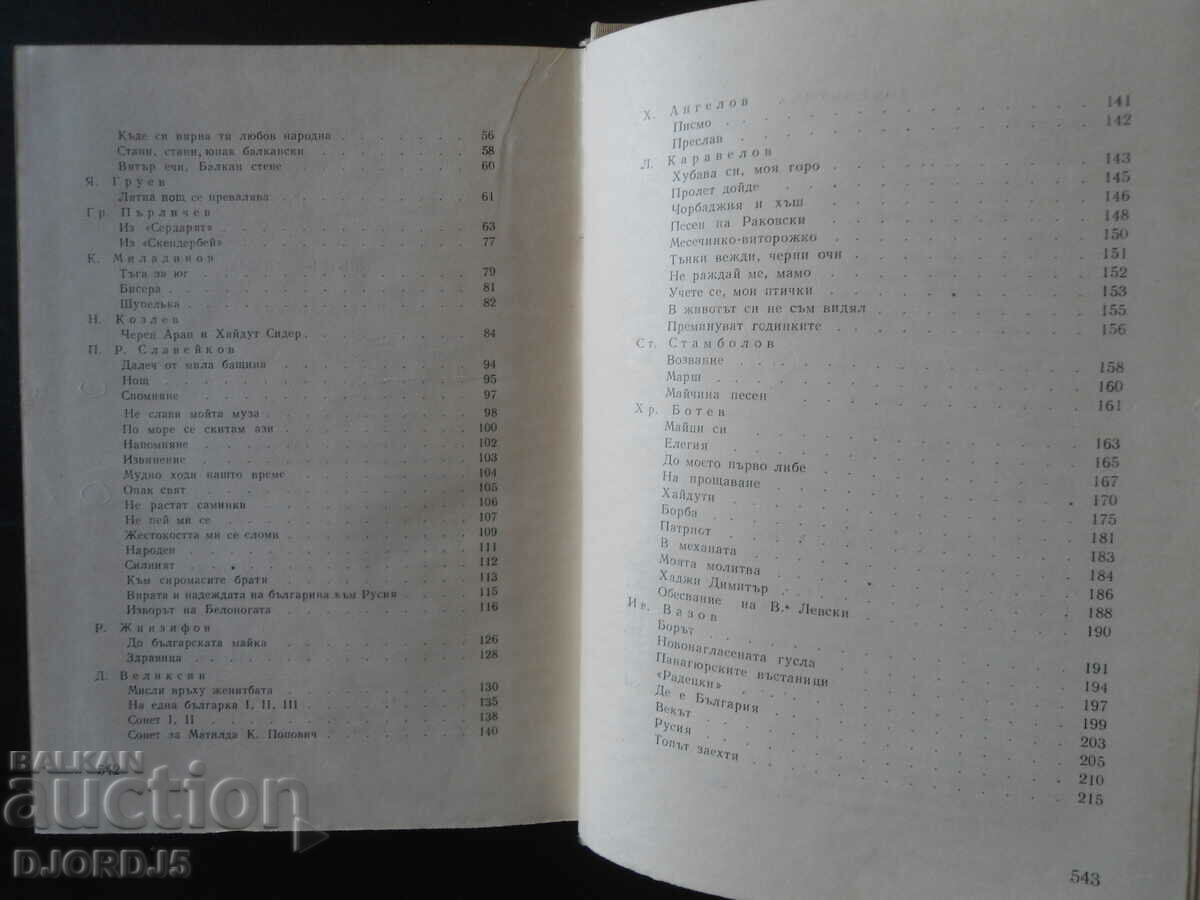 Къде си вярна ти любов народна 56
Стани, стани, юнак балкански 58
Вятър ечи, Балкан стене 60
Я. Груев
Лятна нощ се превалява 61
Гр. Пърличев
Из «Сердарят» 63
Из «Скендербей» 77
К. Миладинов
Тъга за юг 79
Бисера 81
Шупелька 82
Н. Козлев
Черен Арап и Хайдут Сидер 84
П. Р. Славейков
Далеч от мила бащина 94
Нощ 95
Спомняне 97
Не слави мойта муза 98
По море се скитам ази 100
Напомняне 102
Извинение 103
Мудно ходи нашто време 104
Опак свят 105
Не растат саминки 106
Не пей ми се 107
Жестокостта ми се сломи 109
Народен 111
Силният 112
Към сиромасите братя 113
Вярата и надеждата на българина към Русия 115
Изворът на Белоногата 116
Р. Жинзифов
До българската майка 126
Здравица 128
Д. Великсин
Мисли връху женитбата 130
На една българка I, II, III 135
Сонет I, II 138
Сонет за Матилда К. Попович 140
542
Х. Ангелов
Писмо 141
Преслав 142
Л. Каравелов
Хубава си, моя горо 143
Пролет дойде 145
Чорбаджия и хъш 146
Песен на Раковски 148
Месечинко-виторожко 150
Тънки вежди, черни очи 151
Не раждай ме, мамо 152
Учете се, мои птички 153
В животът си не съм видял 155
Преминуват годинките 156
Ст. Стамболов
Возвание 158
Марш 160
Майчина песен 161
Хр. Ботев
Майци си 163
Елегия 165
До моето първо либе 167
На прощаване 170
Хайдути 175
Борба 181
Патриот 183
В механата 184
Моята молитва 186
Хаджи Димитър 188
Обесване на В. Левски 190
Ив. Вазов
Борът 191
Новонагласената гусла 194
Панагюрските въстаници 197
«Радецки» 199
Де е България 203
Векът 205
Русия 210
Топът заехти 215
543
BALKAN
auction
DJORDJ5